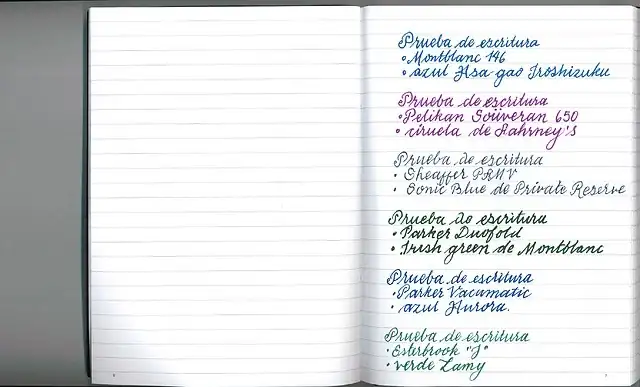 Prueba de escritura
• Montblanc 146
• azul Asa gao Iroshizuku
Prueba de escritura
• Pelikan Soüveran 650
• ciruela de Fahrney's
Prueba de escritura
• Sheaffer PFM V
• Sonic Blue de Private Reserve
Prueba de escritura
• Parker Duofold
• Irish green de Montblanc
Prueba de escritura
• Parker Vacumatic
• azul Aurora.
Prueba de escritura
• Esterbrook "J"
• verde Lamy